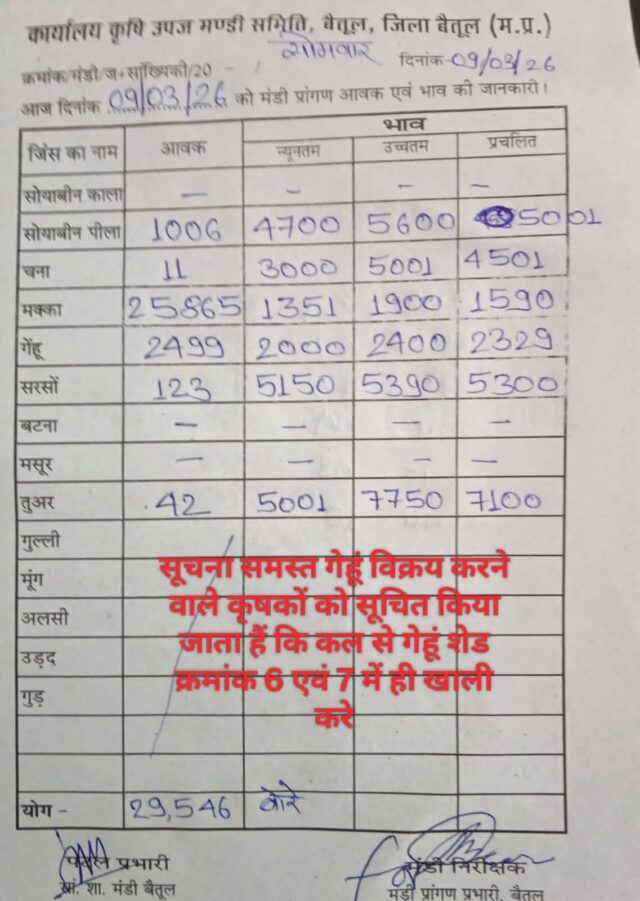 कार्यालय कृषि उपज मण्डी समिति, बैतूल, जिला बैतूल (म.प्र.)
सोमवार
क्रमांक/मंडी/ज+सांख्यिकी/20 - दिनांक-09/03/26
आज दिनांक 09/03/26 को मंडी प्रांगण आवक एवं भाव की जानकारी।
जिंस का नाम आवक भाव
न्यूनतम उच्चतम प्रचलित
सोयाबीन काला — — — —
सोयाबीन पीला 1006 4700 5600 5001
चना 11 3000 5001 4501
मक्का 25865 1351 1900 1590
गेंहू 2499 2000 2400 2329
सरसों 123 5150 5390 5300
बटना — — — —
मसूर — — — —
तुअर 42 5001 7750 7100
गुल्ली
मूंग
अलसी
उड़द
गुड़
सूचना समस्त गेहूं विक्रय करने
वाले कृषकों को सूचित किया
जाता हैं कि कल से गेहूं शेड
क्रमांक 6 एवं 7 में ही खाली
करे
योग - 29,546 बोरे
प्रभारी मंडी निरीक्षक
शा. मंडी बैतूल मंडी प्रांगण प्रभारी, बैतूल